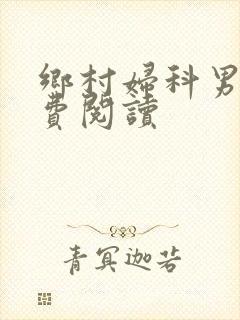 鄉村婦科男
費閱讀
青冥迦若